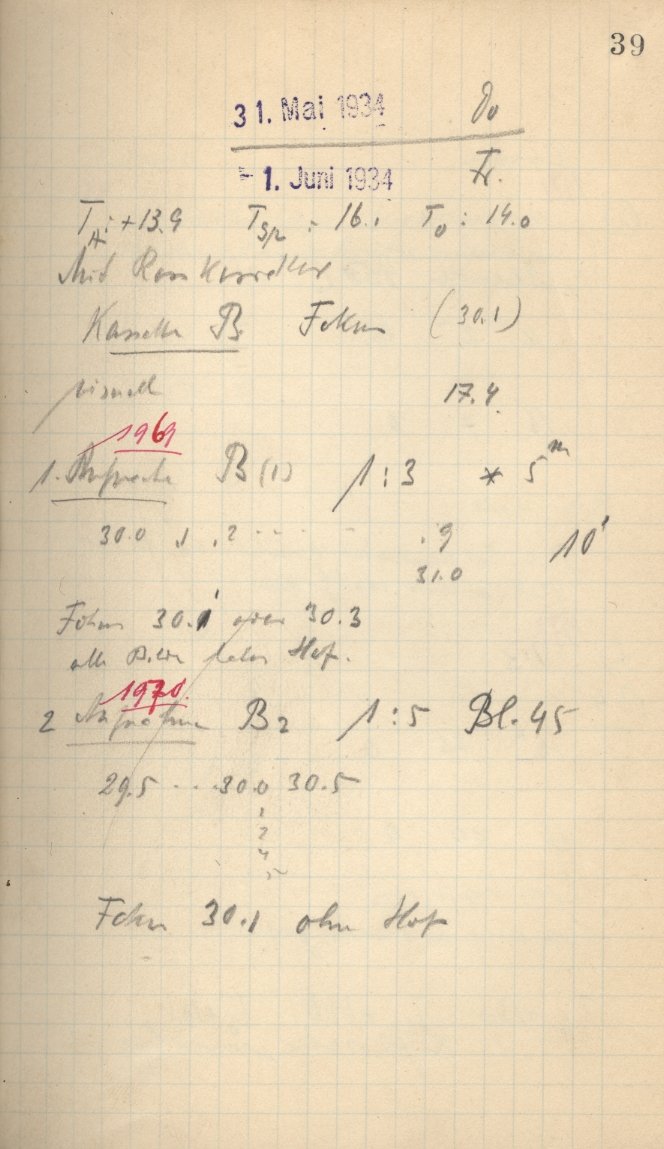 39
31. Mai 1934 Do
- 1. Juni 1934 Fr.
T_A: +13.9 T_Sp: 16.1 T_O: 14.0
Mit Ross Korrektor
Kassette B Fokus (30.1)
visuell 17.4
1969
1. Aufnahme B(1) 1:3 * 5^m
30.0 .1 .2 ... .9 10'
31.0
Fokus 30.1 oder 30.3
alle Bilder haben Hof.
1970.
2 Aufnahme B2 1:5 Bl. 45
29.5 ... 30.0 30.5
1
2
4
5
Fokus 30.1 ohne Hof